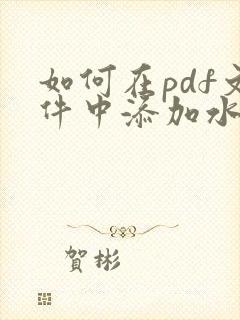 如何在pdf文
件中添加水
賀彬